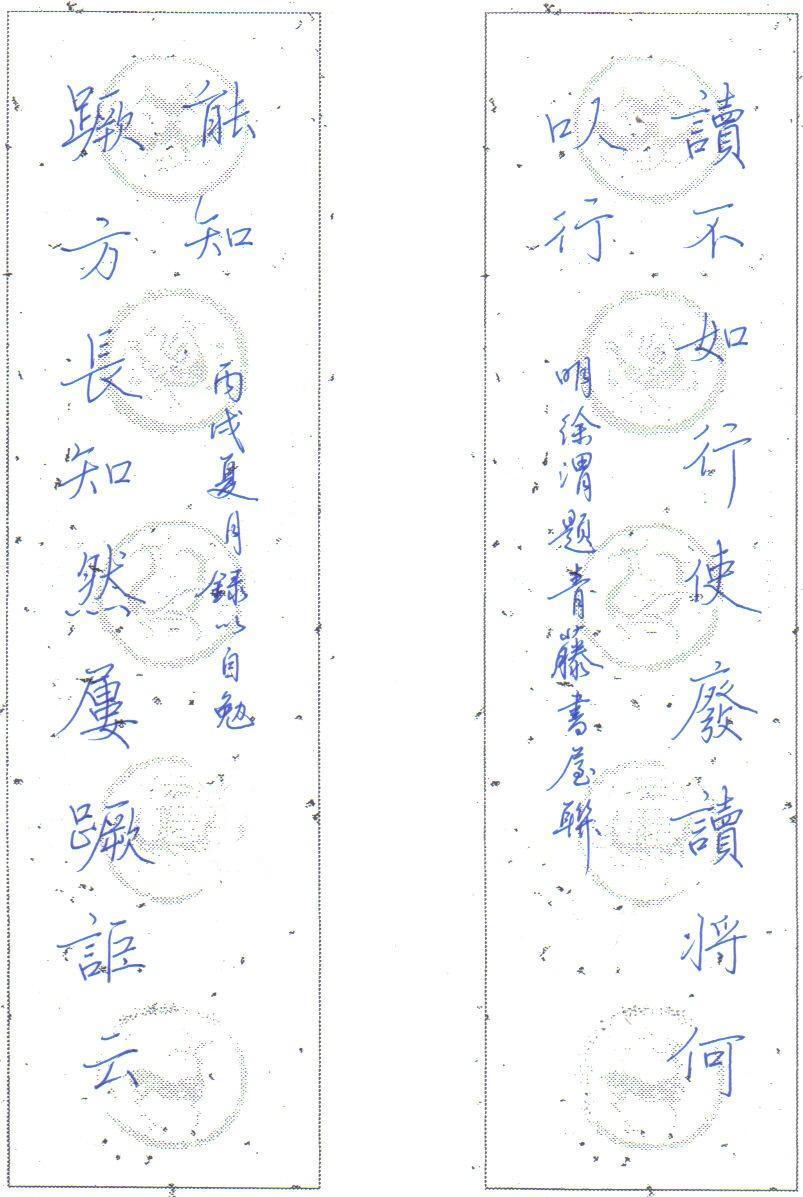 讀不如行使廢讀将何
㕥行
明徐渭題青藤書屋聯
蹶方長知然屢蹶詎云
能知
丙戌夏月録以自勉